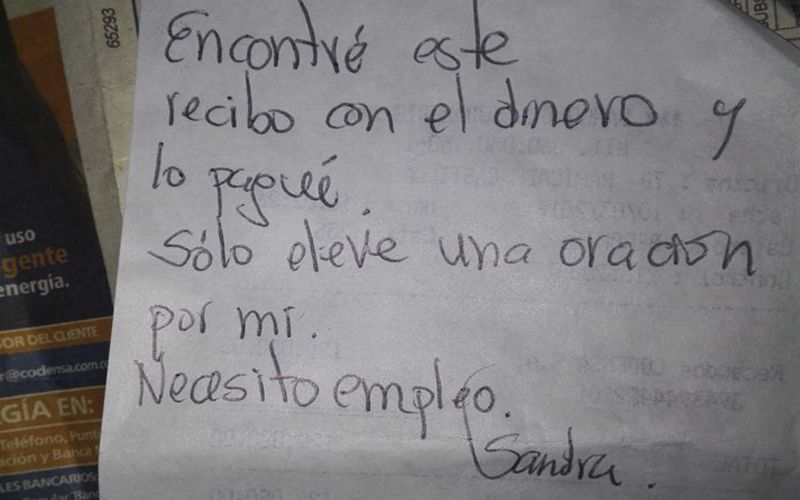 Encontré este
recibo con el dinero y
lo pagué.
Sólo eleve una oración
por mi.
Necesito empleo.
Sandra.
65293
uso
gente
energía.
OR DEL CLIENTE
r@codensa.com.co
GÍA EN:
Teléfono, Punt
ación y Banca
LES BANCARIOS: